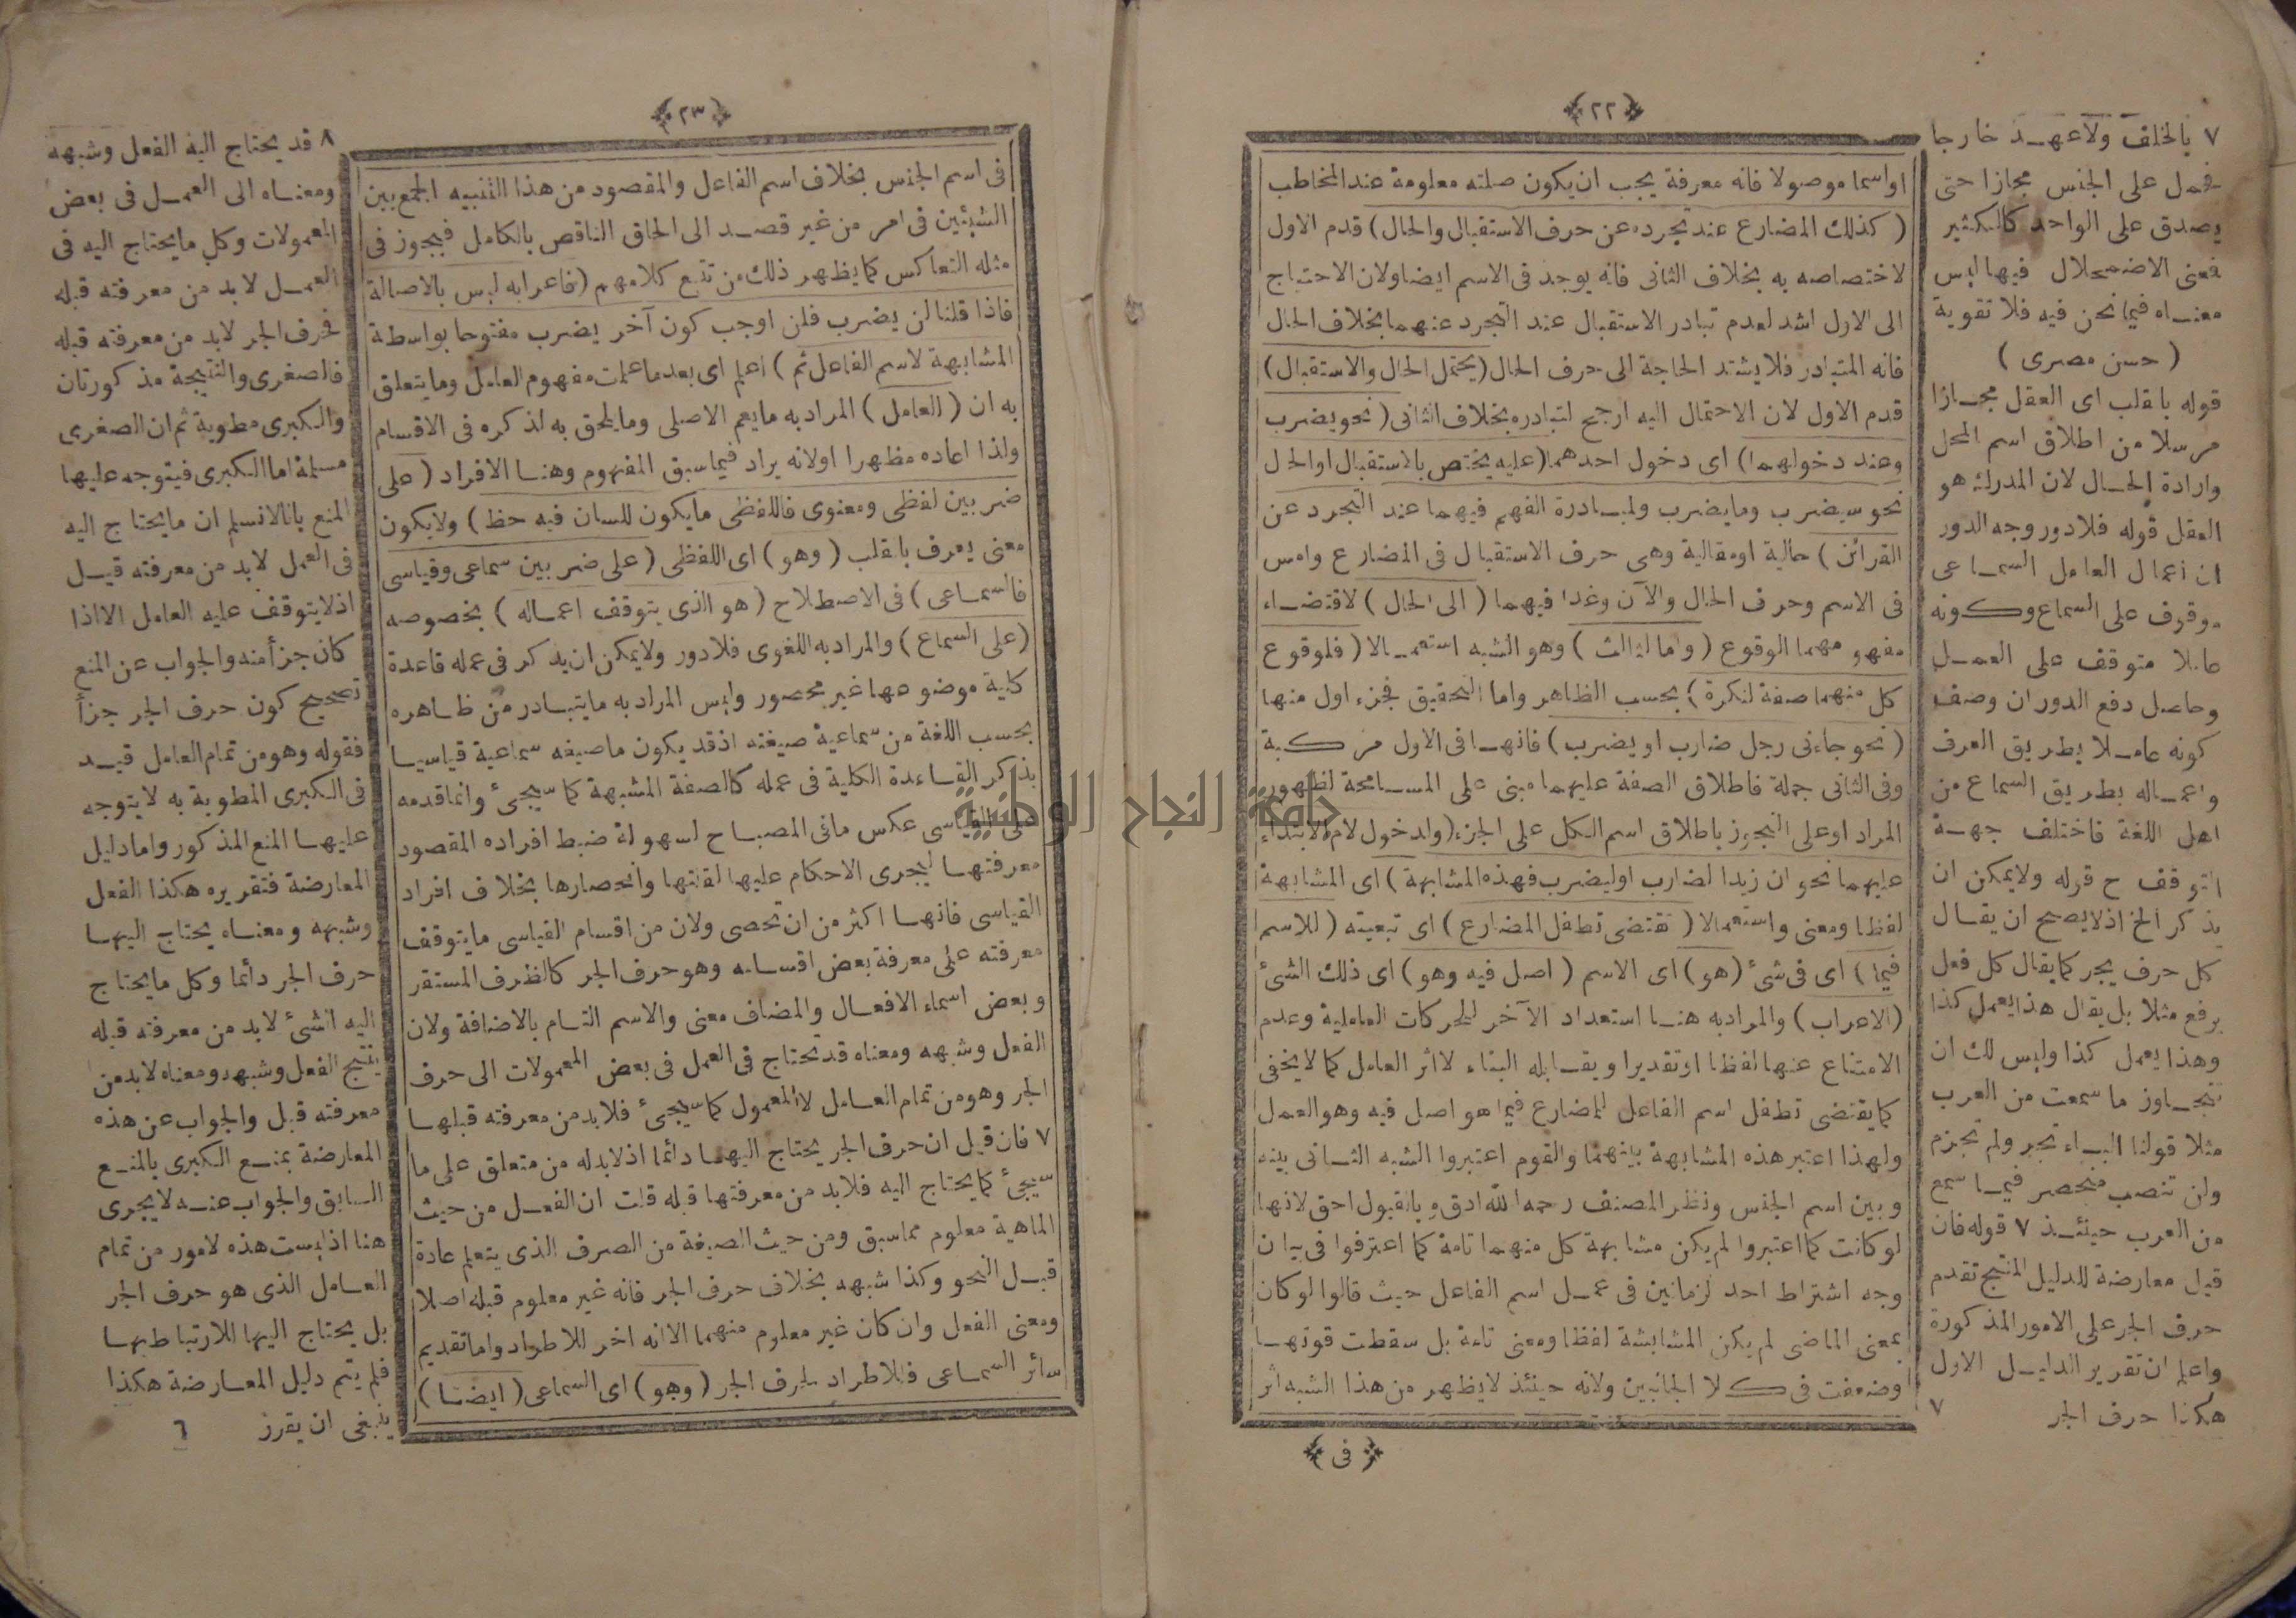 ﴿٢٢﴾
اواسما موصولا فانه معرفة يجب ان يكون صلته معلومة عند المخاطب
(كذلك المضارع عند تجرده عن حرف الاستقبال والحال) قدم الاول
لاختصاصه به بخلاف الثانى فانه يوجد فى الاسم ايضا ولان الاحتياج
الى الاول اشد لعدم تبادر الاستقبال عند التجرد عنهما بخلاف الحال
فانه المتبادر فلا يشتد الحاجة الى حرف الحال (يحتمل الحال والاستقبال)
قدم الاول لان الاحتمال اليه ارجح لتبادره بخلاف الثانى (نحو يضرب
وعند دخولهما) اى دخول احدهما (عليه يختص بالاستقبال او الحال
نحو سيضرب وما يضرب ولمبادرة الفهم فيهما عند التجرد عن
القرائن) حالية او مقالية وهى حرف الاستقبال فى المضارع وامس
فى الاسم وحرف الحال والآن وغدا فيهما (الى الحال) لاقتضاء
مفهومهما الوقوع (واما الثالث) وهو الشبه استعمالا (فلوقوع
كل منهما صفة لنكرة) بحسب الظاهر واما التحقيق فجزء اول منها
(نحو جاءنى رجل ضارب او يضرب) فانها فى الاول مركبة
وفى الثانى جملة فاطلاق الصفة عليهما مبنى على المسامحة لظهور
المراد او على التجوز باطلاق اسم الكل على الجزء (ولدخول لام الابتداء
عليهما نحو ان زيدا لضارب او ليضرب فهذه المشابهة) اى المشابهة
لفظا ومعنى واستعمالا (تقتضى تطفل المضارع) اى تبعيته (للاسم
فيما) اى فى شئ (هو) اى الاسم (اصل فيه وهو) اى ذلك الشئ
(الاعراب) والمراد به هنا استعداد الآخر للحركات العاملية وعدم
الامتناع عنها لفظا او تقديرا ويقابله البناء لا اثر العامل كما لا يخفى
كما يقتضى تطفل اسم الفاعل للمضارع فيما هو اصل فيه وهو العمل
ولهذا اعتبر هذه المشابهة بينهما والقوم اعتبروا الشبه الثانى بينه
وبين اسم الجنس ونظر المصنف رحمه الله ادق وبالقبول احق لانها
لو كانت كما اعتبروا لم يكن مشابهة كل منهما تامة كما اعترفوا فى بيان
وجه اشتراط احد الزمانين فى عمل اسم الفاعل حيث قالوا لو كان
بمعنى الماضى لم يكن المشابهة لفظا ومعنى تامة بل سقطت قوتها
وضعفت فى كلا الجانبين ولانه حينئذ لا يظهر من هذا الشبه اثر
﴿فى﴾
٧ بالخلف ولا عهد خارجا
فحمل على الجنس مجازا حتى
يصدق على الواحد كالكثير
فمعنى الاضمحلال فيها ليس
معناه فيما نحن فيه فلا تقوية
(حسن مصرى)
قوله بالقلب اى العقل مجازا
مرسلا من اطلاق اسم المحل
وارادة الحال لان المدرك هو
العقل قوله فلا دور وجه الدور
ان اعمال العامل السماعى
موقوف على السماع وكونه
عاملا متوقف على العمل
وحاصل دفع الدور ان وصف
كونه عاملا بطريق العرف
واعماله بطريق السماع من
اهل اللغة فاختلف جهة
التوقف ح قوله ولا يمكن ان
يذكر الخ اذ لا يصح ان يقال
كل حرف يجر كما يقال كل فعل
يرفع مثلا بل يقال هذا يعمل كذا
وهذا يعمل كذا وليس لك ان
تتجاوز ما سمعت من العرب
مثلا قولنا الباء تجر ولم تجزم
ولن تنصب منحصر فيما سمع
من العرب حينئذ ٧ قوله فان
قيل معارضة للدليل المنتج تقدم
حرف الجر على الامور المذكورة
واعلم ان تقرير الدليل الاول
هكذا حرف الجر ٧
﴿٢٣﴾
فى اسم الجنس بخلاف اسم الفاعل والمقصود من هذا التنبيه الجمع بين
الشيئين فى امر من غير قصد الى الحاق الناقص بالكامل فيجوز فى
مثله التعاكس كما يظهر ذلك من تتبع كلامهم (فاعرابه ليس بالاصالة
فاذا قلنا لن يضرب فلن اوجب كون آخر يضرب مفتوحا بواسطة
المشابهة لاسم الفاعل ثم) اعلم اى بعد ما علمت مفهوم العامل وما يتعلق
به ان (العامل) المراد به ما يعم الاصلى وما يلحق به لذكره فى الاقسام
ولذا اعاده مظهرا او لانه يراد فيما سبق المفهوم وهنا الافراد (على
ضربين لفظى ومعنوى فاللفظى ما يكون للسان فيه حظ) ولا يكون
معنى يعرف بالقلب (وهو) اى اللفظى (على ضربين سماعى وقياسى
فالسماعى) فى الاصطلاح (هو الذى يتوقف اعماله) بخصوصه
(على السماع) والمراد به اللغوى فلا دور ولا يمكن ان يذكر فى عمله قاعدة
كلية موضوعها غير محصور وليس المراد به ما يتبادر من ظاهره
بحسب اللغة من سماعية صيغته اذ قد يكون ما صيغه سماعية قياسيا
بذكر القاعدة الكلية فى عمله كالصفة المشبهة كما سيجئ وانما قدمه
على القياسى عكس ما فى المصباح لسهولة ضبط افراده المقصود
معرفتها ليجرى الاحكام عليها لقلتها وانحصارها بخلاف افراد
القياسى فانها اكثر من ان تحصى ولان من اقسام القياسى ما يتوقف
معرفته على معرفة بعض اقسامه وهو حرف الجر كالظرف المستقر
وبعض اسماء الافعال والمضاف معنى والاسم التام بالاضافة ولان
الفعل وشبهه ومعناه قد تحتاج فى العمل فى بعض المعمولات الى حرف
الجر وهو من تمام العامل لا المعمول كما سيجئ فلا بد من معرفته قبلها
٧ فان قيل ان حرف الجر يحتاج اليها دائما اذ لا بد له من متعلق على ما
سيجئ كما يحتاج اليه فلا بد من معرفتها قبله قلت ان الفعل من حيث
الماهية معلوم مما سبق ومن حيث الصيغة من الصرف الذى يتعلم عادة
قبل النحو وكذا شبهه بخلاف حرف الجر فانه غير معلوم قبله اصلا
ومعنى الفعل وان كان غير معلوم منهما الا انه اخر للاطراد واما تقديم
سائر السماعى فللاطراد بحرف الجر (وهو) اى السماعى (ايضا)
٨ قد يحتاج اليه الفعل وشبهه
ومعناه الى العمل فى بعض
المعمولات وكل ما يحتاج اليه فى
العمل لا بد من معرفته قبله
فحرف الجر لا بد من معرفته قبله
فالصغرى والنتيجة مذكورتان
والكبرى مطوية ثم ان الصغرى
مسلمة اما الكبرى فيتوجه عليها
المنع بانا لا نسلم ان ما يحتاج اليه
فى العمل لا بد من معرفته قبل
اذ لا يتوقف عليه العامل الا اذا
كان جزأ منه والجواب عن المنع
تصحيح كون حرف الجر جزأ
فقوله وهو من تمام العامل قيد
فى الكبرى المطوية به لا يتوجه
عليها المنع المذكور واما دليل
المعارضة فتقريره هكذا الفعل
وشبهه ومعناه يحتاج اليها
حرف الجر دائما وكل ما يحتاج
اليه الشئ لا بد من معرفته قبله
ينتج الفعل وشبهه ومعناه لا بد من
معرفته قبل والجواب عن هذه
المعارضة بمنع الكبرى بالمنع
السابق والجواب عنه لا يجرى
هنا اذ ليست هذه لامور من تمام
العامل الذى هو حرف الجر
بل يحتاج اليها للارتباط بها
فلم يتم دليل المعارضة هكذا
ينبغى ان يقرر ٦
جامعة النجاح الوطنية